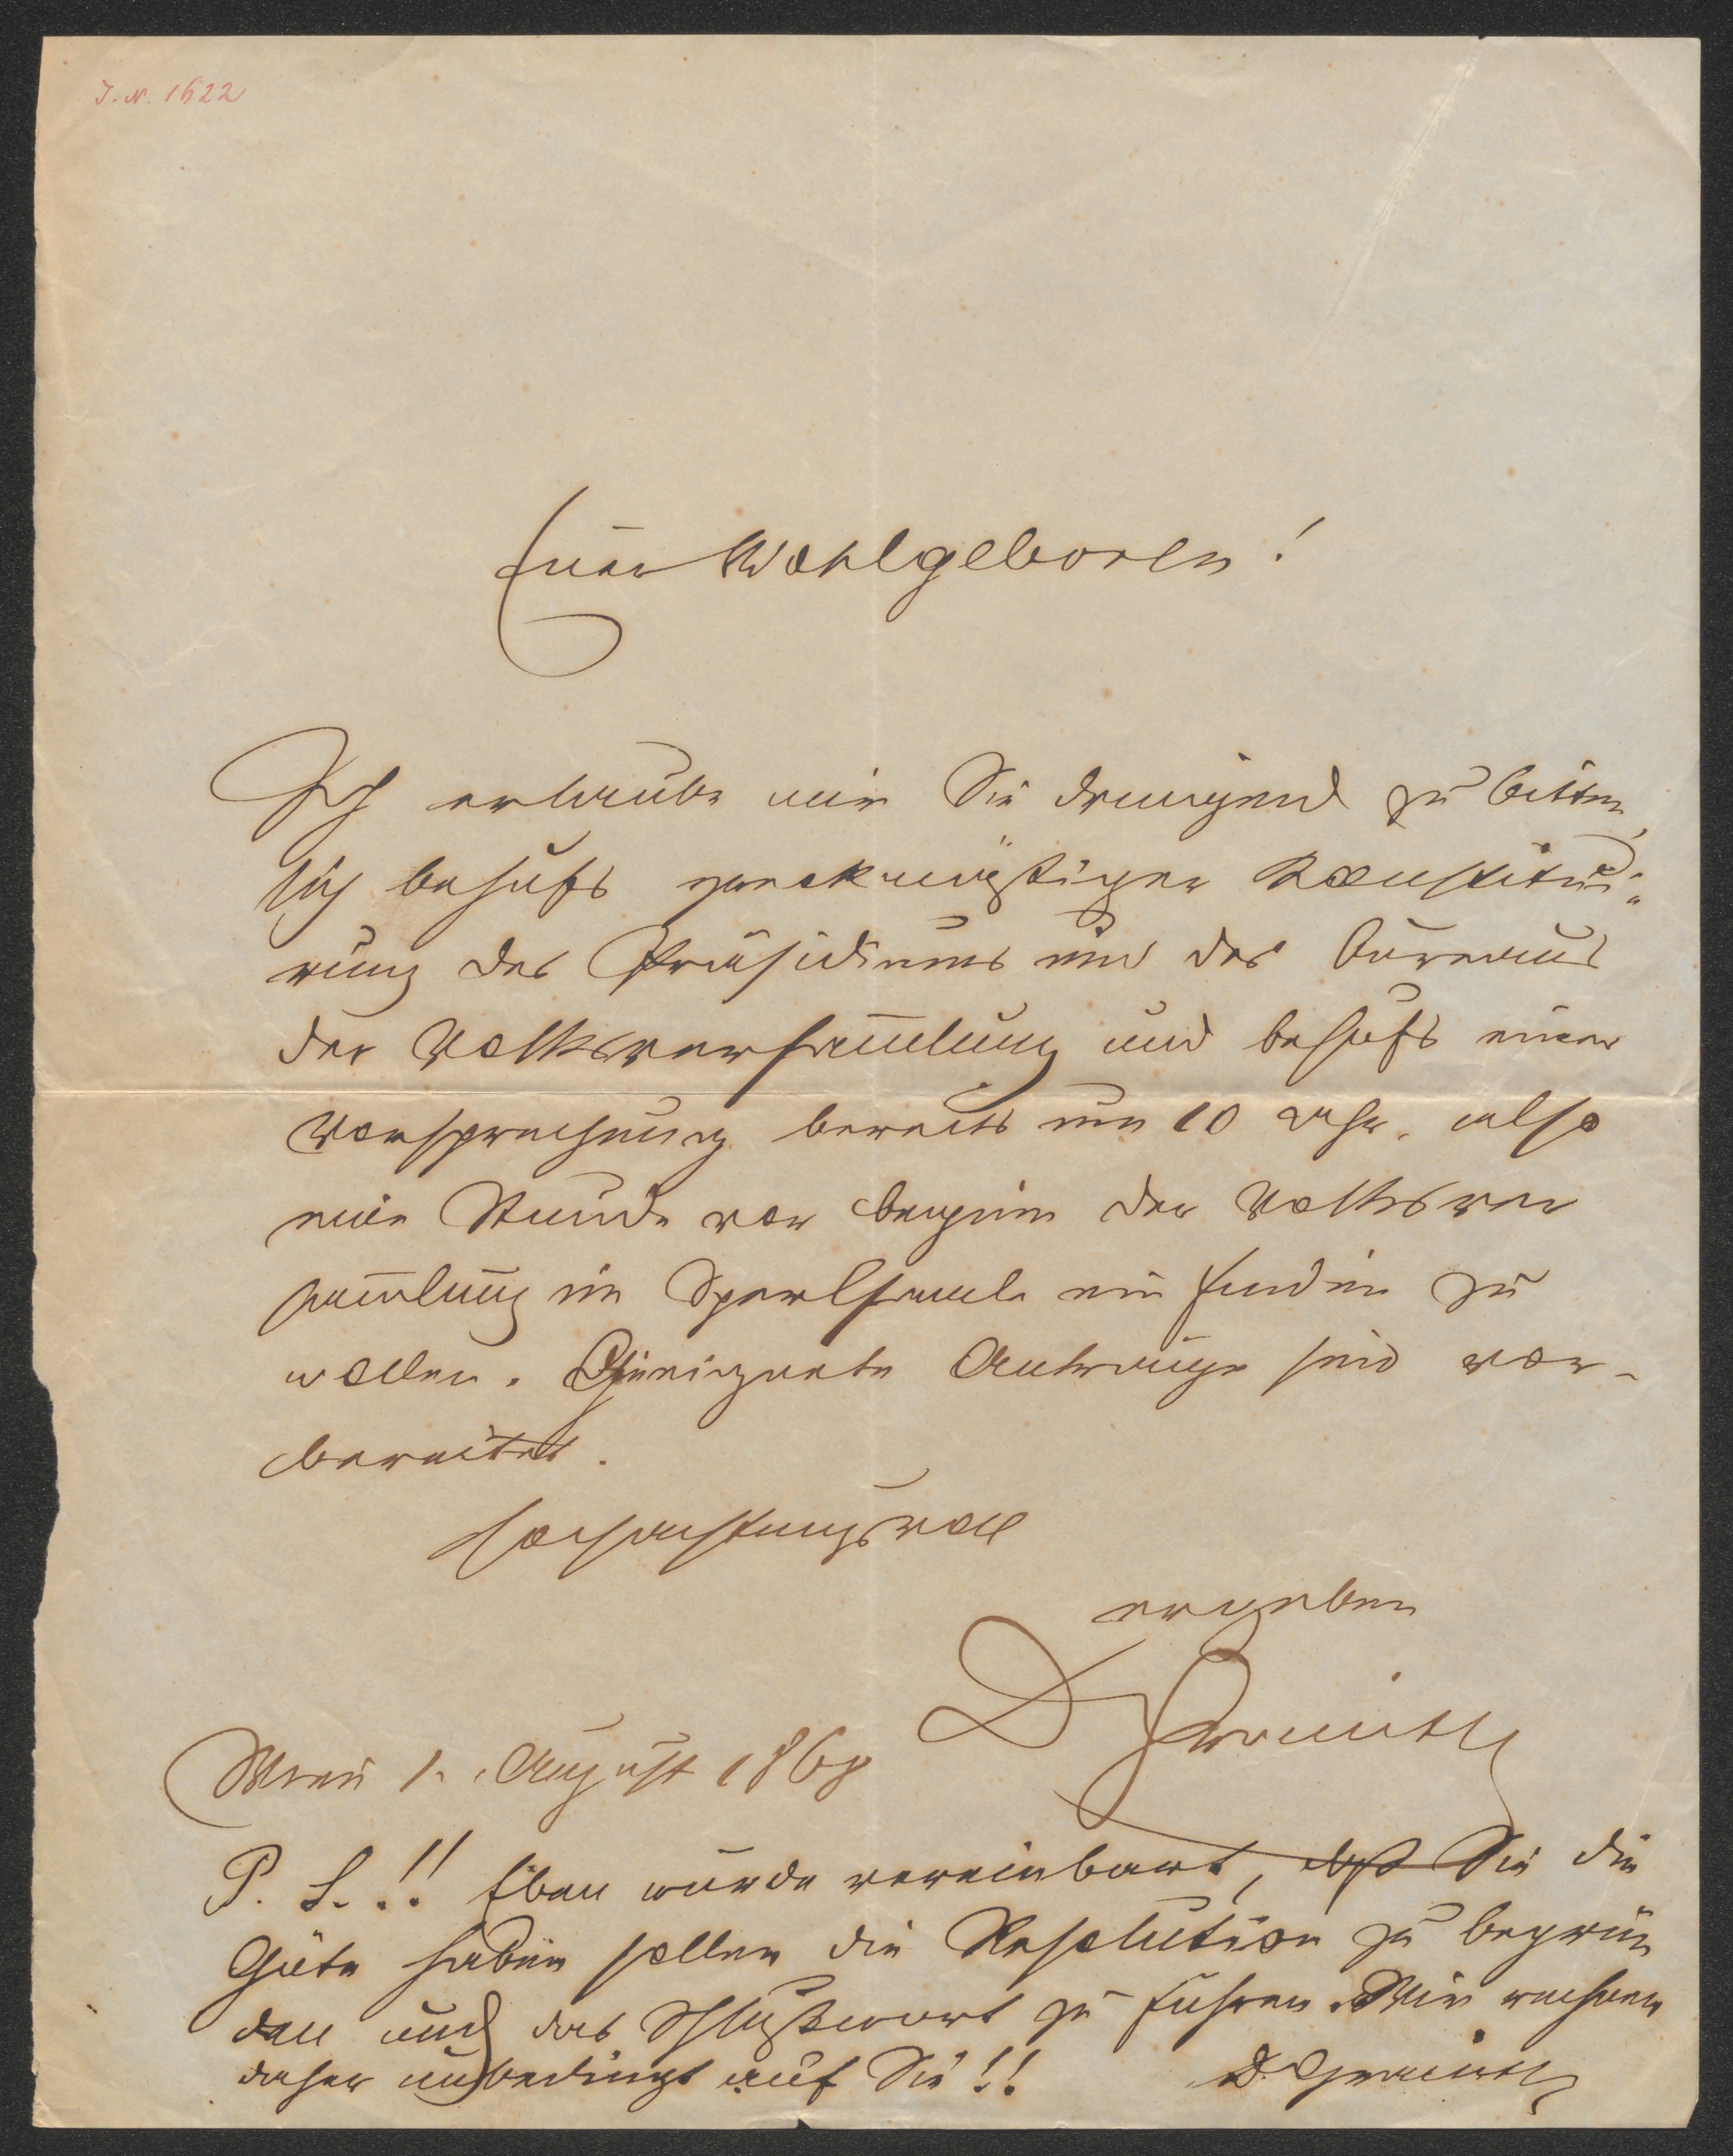 I. N. 1622
Euer Wohlgeboren!
Ich erlaube mir Sie dringend zu bitten,
sich behufs zweckmäßiger Konstitui-
rung des Präsidiums und des Bureaus
der Volksversam̅lung und behufs einer
Vorsprechung bereits um 10 Uhr, also
eine Stunde vor Beginn der Volksver
sam̅lung im Sperlsaale ein finden zu
wollen. Geeignete Anträge sind vor-
bereitet.
Hochachtungsvoll
ergeben
D
Wien 1. August 1868
P. S.!! Eben wurde vereinbart, daß Sie die
Güte haben sollen die Resolution zu begrün
den und das Schlußwort zu führen. Wir rechnen
daher unbedingt auf Sie!!
D